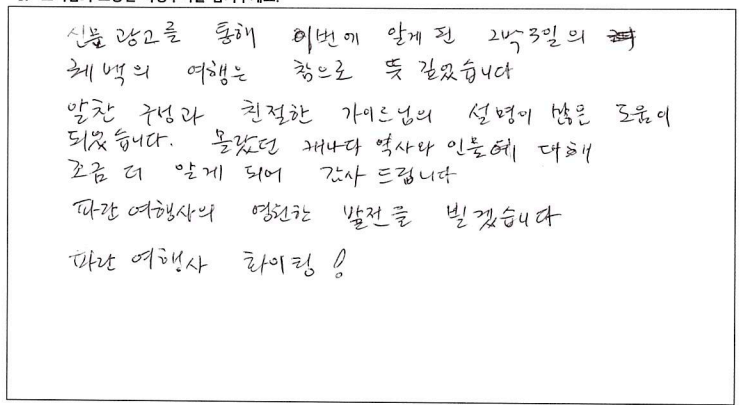 신문 광고를 통해 이번에 알게 된 2박3일의
퀘벡의 여행은 참으로 뜻 깊었습니다
알찬 구성과 친절한 가이드님의 설명이 많은 도움이
되었습니다. 몰랐던 캐나다 역사와 인물에 대해
조금 더 알게 되어 감사 드립니다
파란 여행사의 영원한 발전을 빌겠습니다
파란 여행사 화이팅!